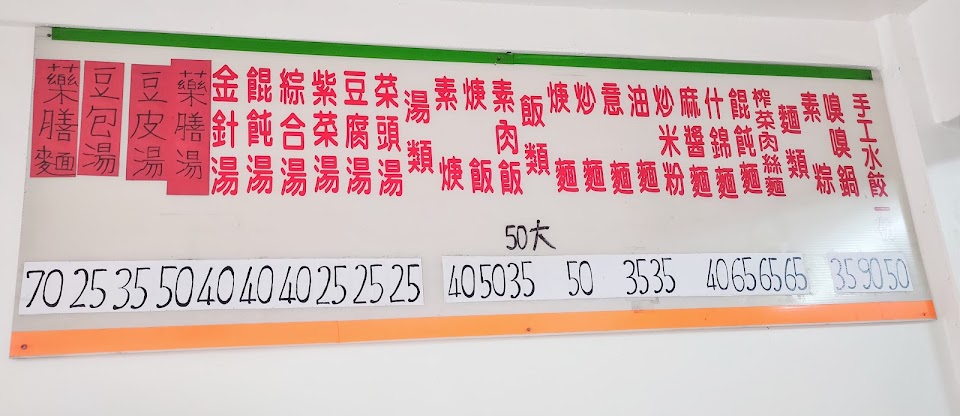 手工水餃一
嗅嗅鍋
素粽
麵類
榨菜肉絲麵
餛飩麵
什錦麵
麻醬麵
炒米粉
油麵
意麵
炒麵
焿麵
飯類
素肉飯
焿飯
素焿
湯類
菜頭湯
豆腐湯
紫菜湯
綜合湯
餛飩湯
金針湯
藥膳湯
豆皮湯
豆包湯
藥膳麵
50大
70 25 35 50 40 40 40 25 25 25 40 50 35 50 35 35 40 65 65 65 35 90 50